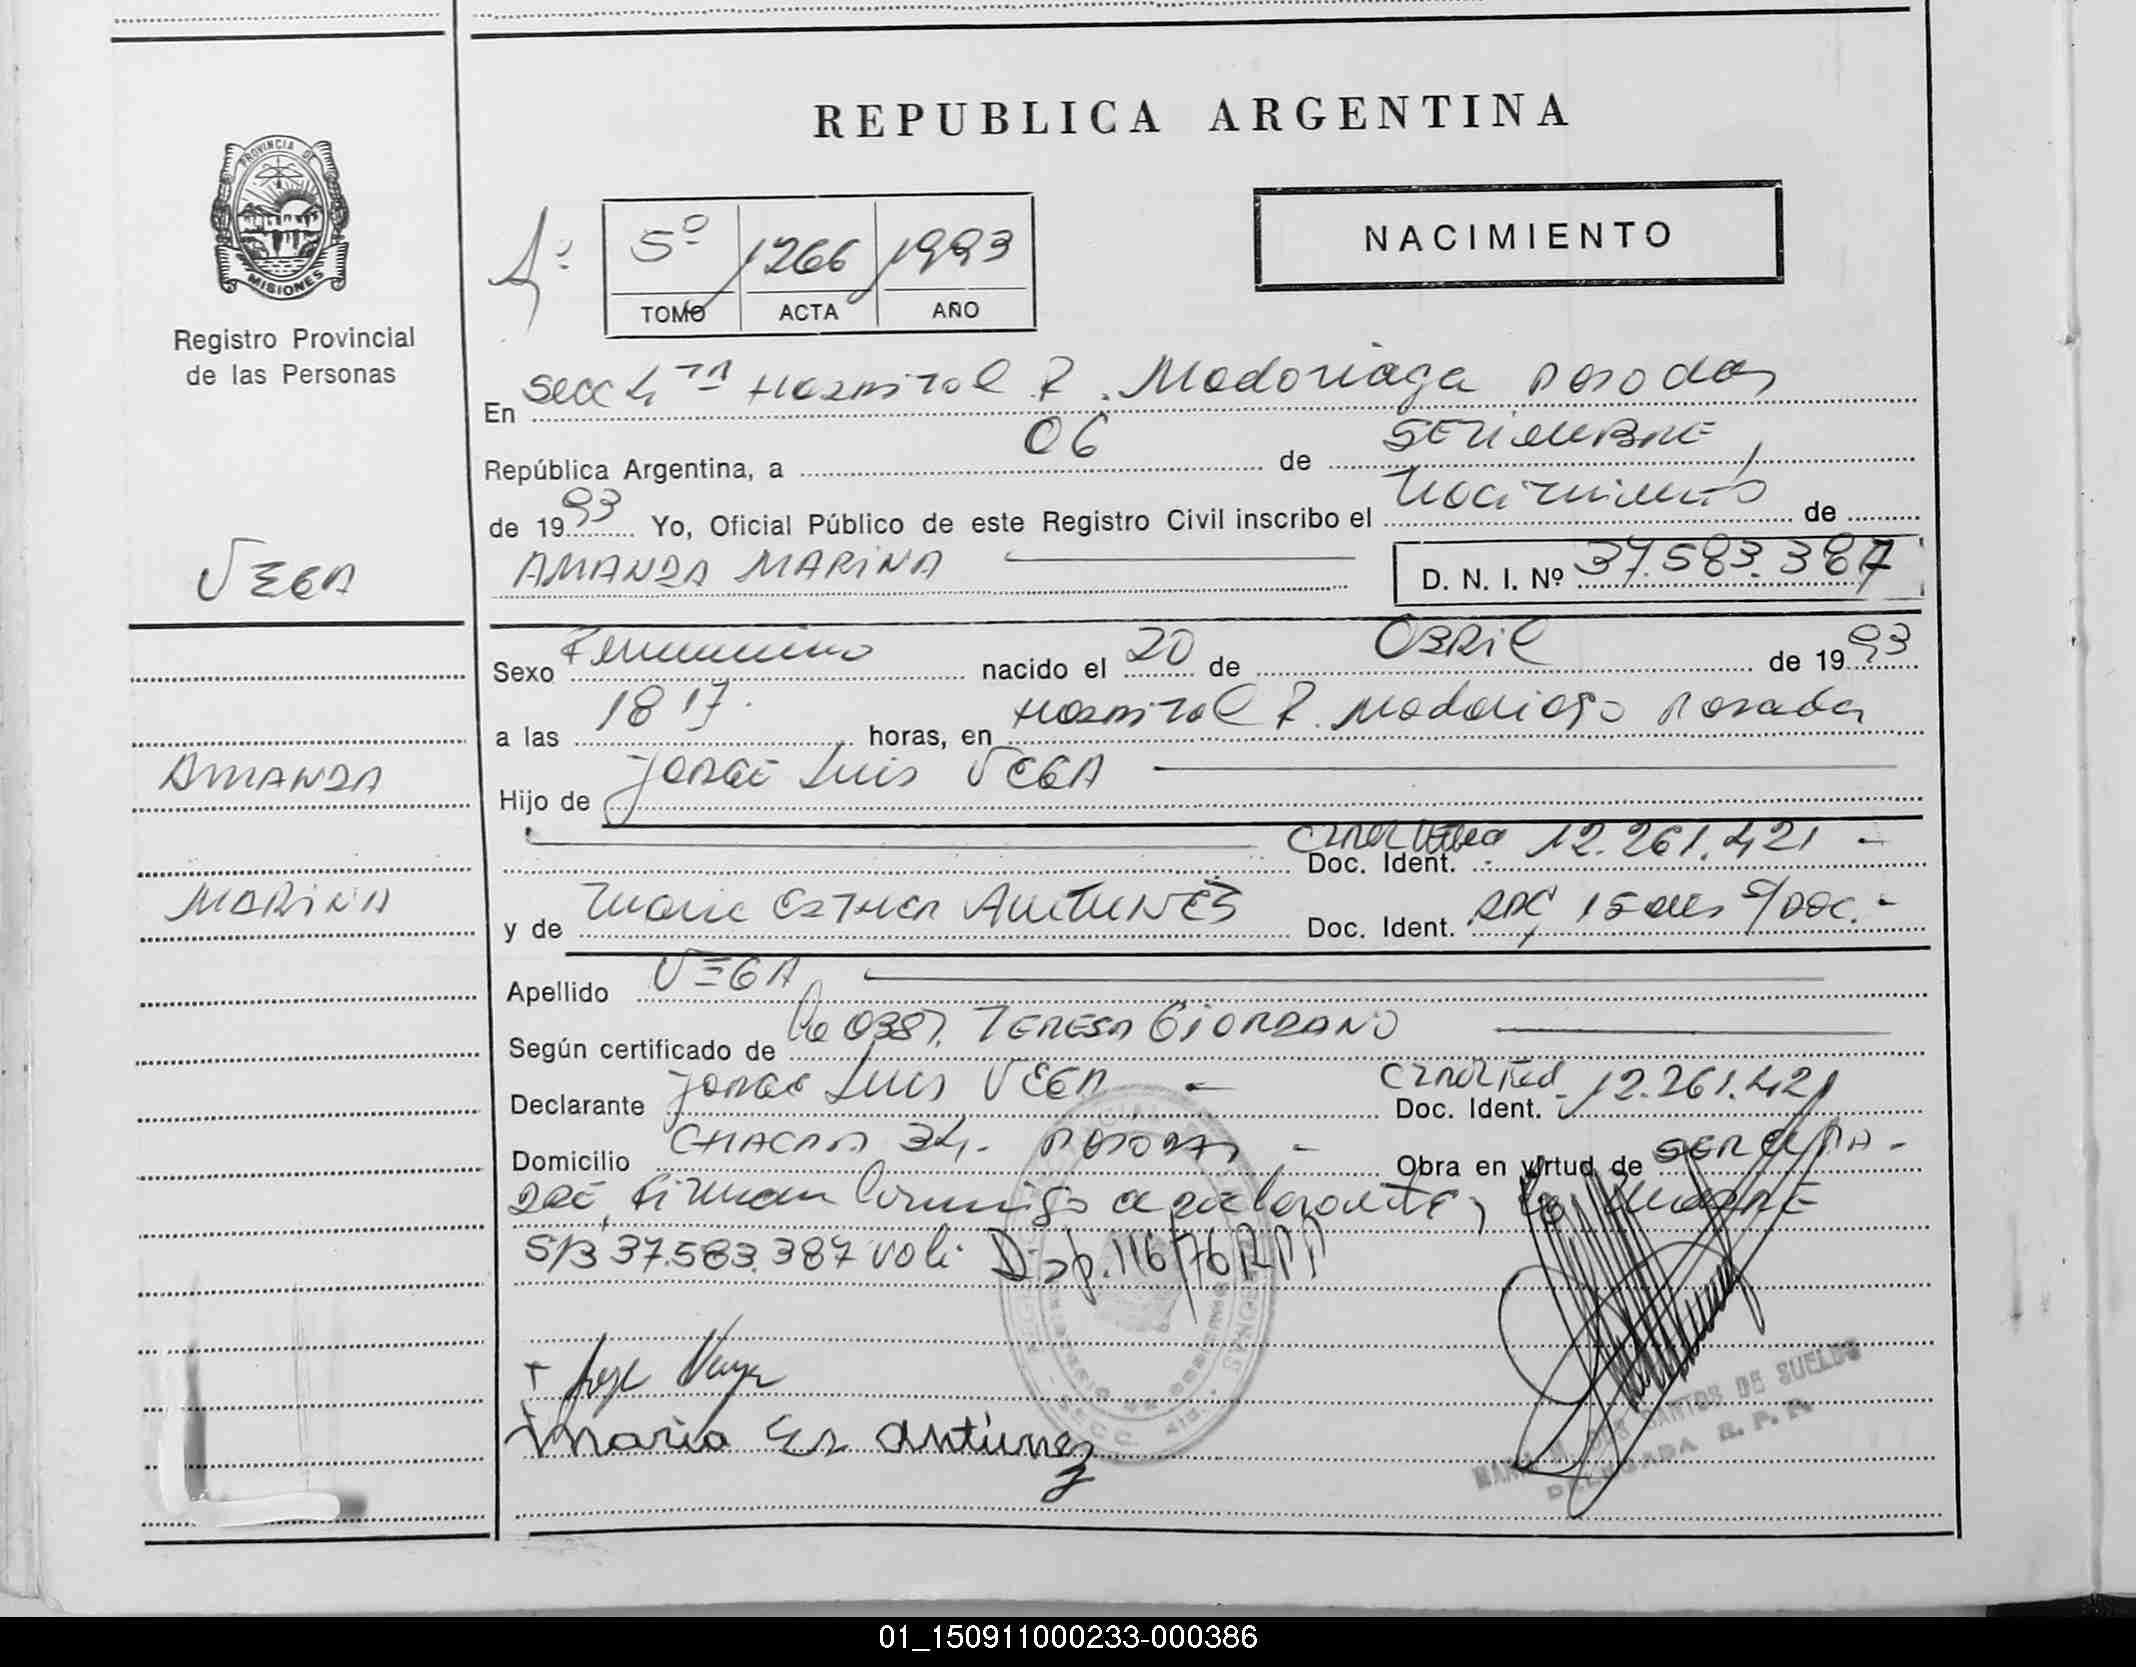 REPUBLICA ARGENTINA
PROVINCIA DE
MISIONES
Registro Provincial
de las Personas
5º 1266 1993
TOMO ACTA AÑO
NACIMIENTO
En Secc 4ta Hospital R. Madariaga Posadas
República Argentina, a 06 de SETIEMBRE
de 1993 Yo, Oficial Público de este Registro Civil inscribo el Nacimiento de
AMANDA MARINA D. N. I. Nº 37.583.387
VEGA
AMANDA
MARINA
Sexo Femenino nacido el 20 de ABRIL de 1993
a las 18 17 horas, en Hospital R. Madariaga Posadas
Hijo de JORGE Luis VEGA
Doc. Ident. 12.261.421 -
y de Maria ESTHER ANTUNES Doc. Ident. 15 S/Doc. -
Apellido VEGA
Según certificado de 0387. TERESA GIORDANO
Declarante JORGE Luis VEGA - Doc. Ident. 12.261.421
Domicilio CHACRA 34, - POSADAS - Obra en virtud de SER el PA-
DRE, Firman Conmigo el declarante y la MADRE
S/B 37.583.387 vale Disp. 116/76 RPP
+ Jorge Vega
Maria Es Antunez
DOS SANTOS DE SUELDO
DELEGADA R. P. P.
01_150911000233-000386